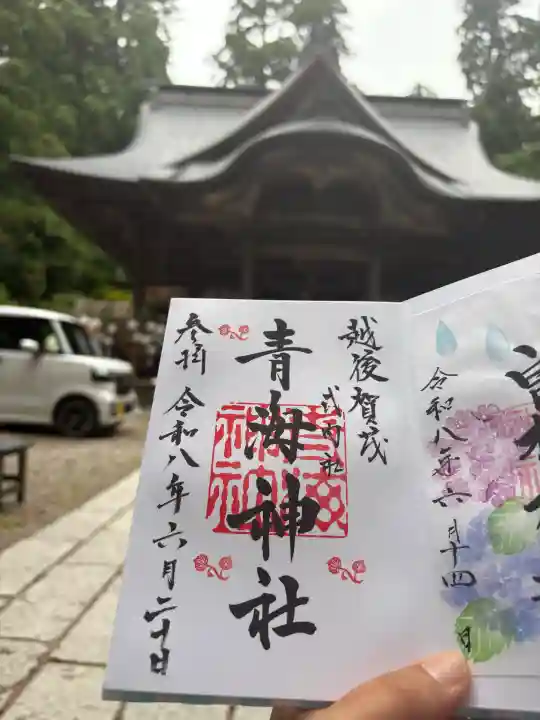 越後賀茂
式内社
青海神社
参拝
令和八年六月二十日
令和八年六月十四日